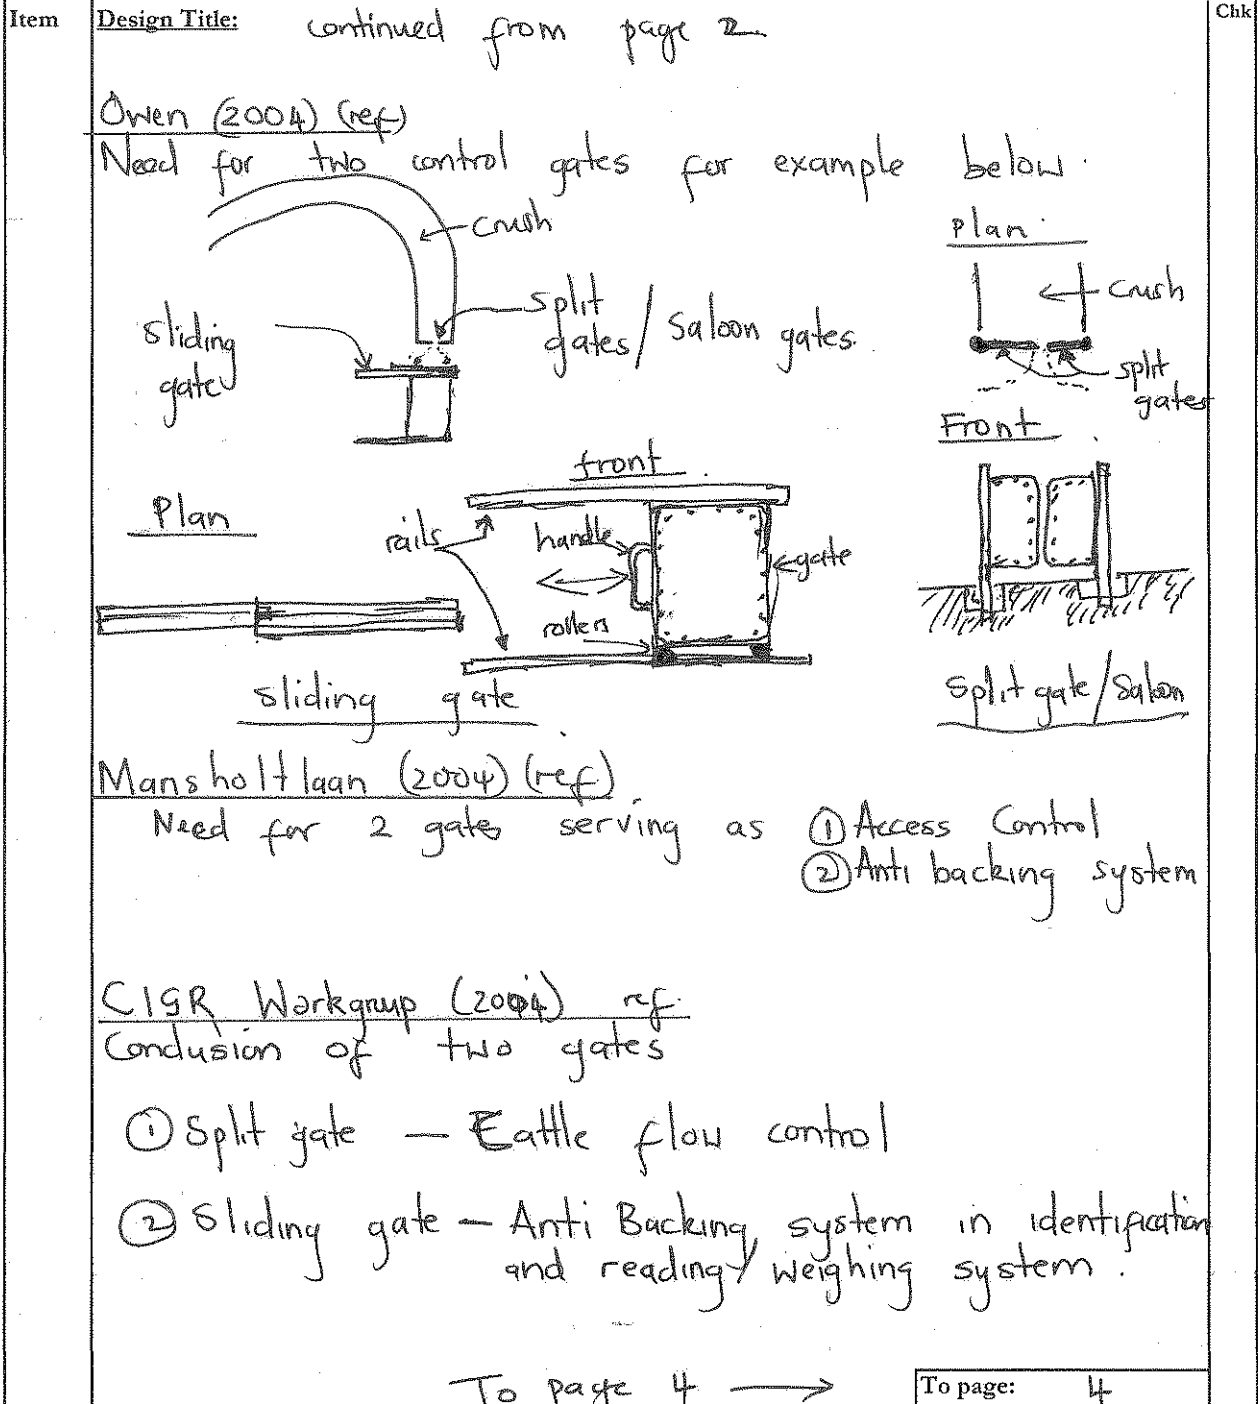 Item Design Title: continued from page 2 Chk
Owen (2004) (ref)
Need for two control gates for example below.
crush
Plan
crush
split gates
sliding gate
split gates / Saloon gates
Front
front
Plan
rails
handle
gate
rollers
sliding gate
Split gate / Saloon
Mansholtlaan (2004) (ref)
Need for 2 gates serving as ① Access Control
② Anti backing system
CIGR Workgroup (2004) ref.
Conclusion of two gates
① Split gate — Cattle flow control
② Sliding gate — Anti Backing system in identification
and reading / weighing system.
To page 4 → To page: 4